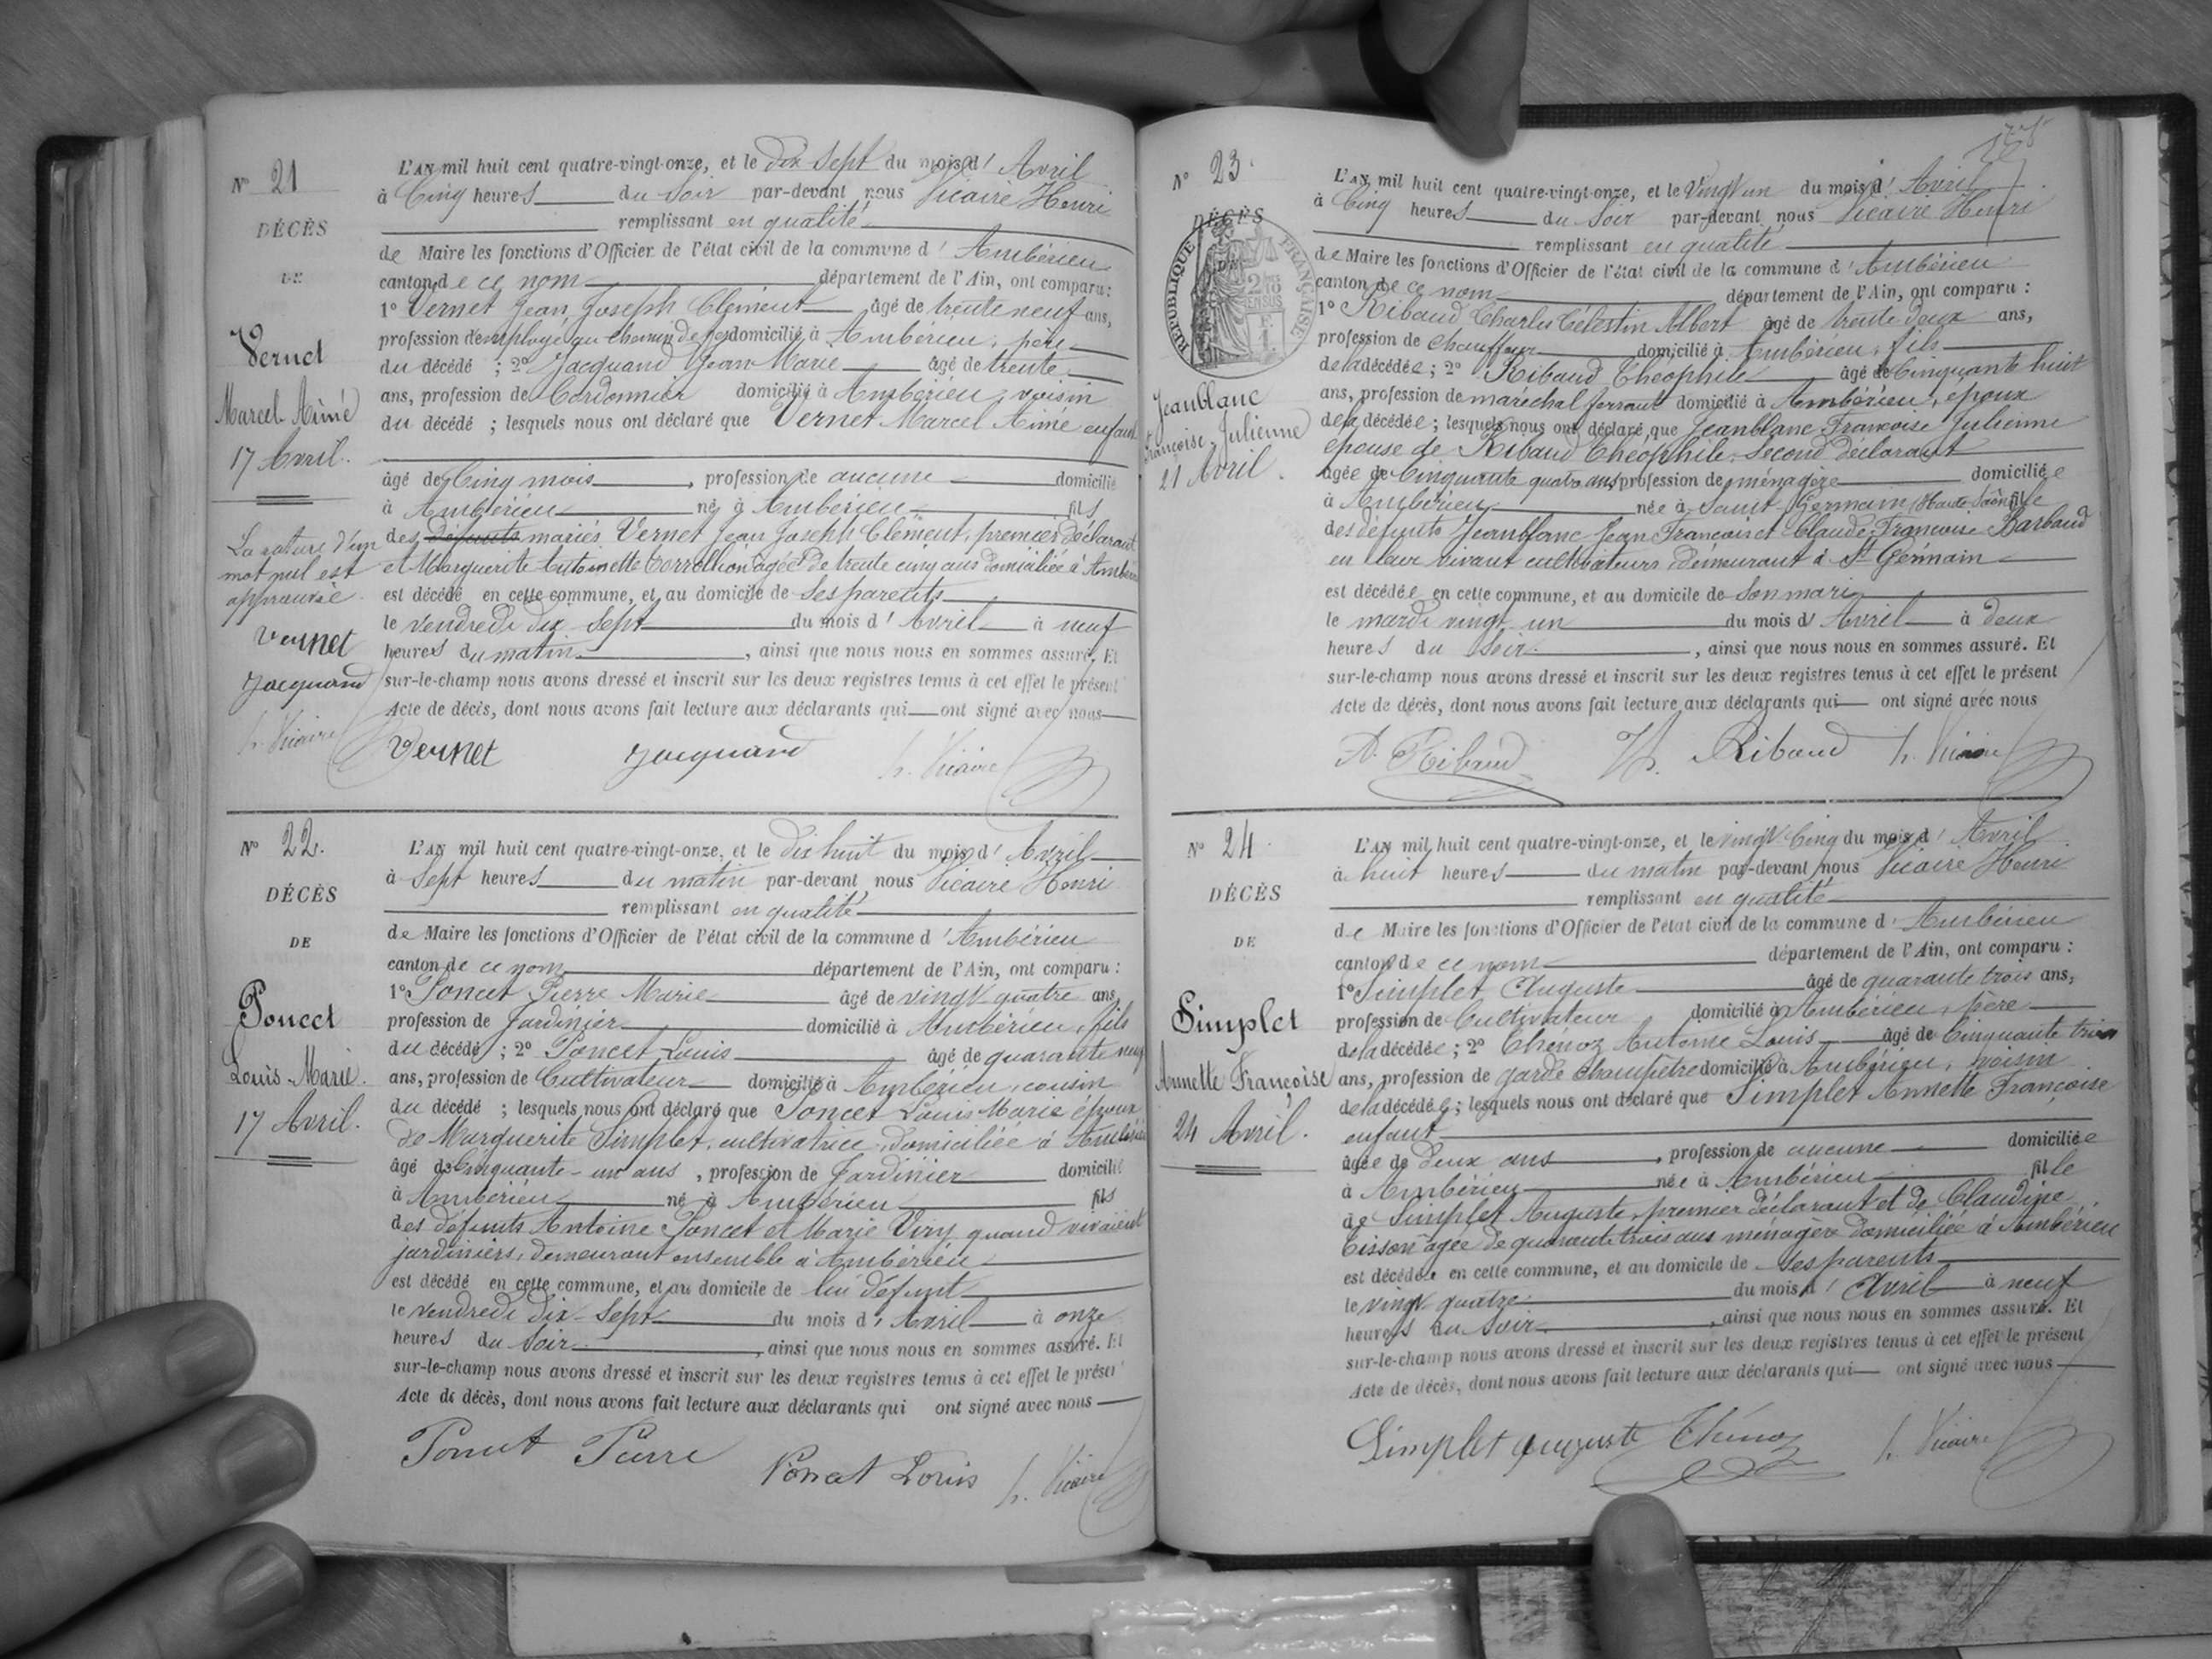 N° 21
DÉCÈS
DE
Vernet
Marcel Aimé
17 Avril.
La rature d'un
mot nul est
approuvée.
Vernet
Jacquand
h. Vicaire
L'AN mil huit cent quatre-vingt-onze, et le dix Sept du mois d' Avril
à Cinq heures du Soir par-devant nous Vicaire Henri
remplissant en qualité
de Maire les fonctions d'Officier de l'état civil de la commune d' Ambérieu
canton de ce nom département de l'Ain, ont comparu:
1° Vernet Jean Joseph Clément âgé de trente neuf ans,
profession d'employé au chemin de fer domicilié à Ambérieu, père
du décédé ; 2° Jacquand Jean Marie âgé de trente
ans, profession de Cordonnier domicilié à Ambérieu, voisin
du décédé ; lesquels nous ont déclaré que Vernet Marcel Aimé enfant
âgé de Cinq mois, profession de aucune domicilié
à Ambérieu né à Ambérieu fils
des défunts mariés Vernet Jean Joseph Clément, premier déclarant
et Marguerite Antoinette âgée de trente cinq ans domiciliée à
est décédé en cette commune, et au domicile de Ses parents
le vendredi dix Sept du mois d' Avril à neuf
heures du matin, ainsi que nous nous en sommes assuré. Et
sur-le-champ nous avons dressé et inscrit sur les deux registres tenus à cet effet le présent
Acte de décès, dont nous avons fait lecture aux déclarants qui ont signé avec nous
Vernet Jacquand h. Vicaire
N° 22.
DÉCÈS
DE
Poncet
Louis Marie.
17 Avril.
L'AN mil huit cent quatre-vingt-onze, et le dix huit du mois d' Avril
à Sept heures du matin par-devant nous Vicaire Henri
remplissant en qualité
de Maire les fonctions d'Officier de l'état civil de la commune d' Ambérieu
canton de ce nom département de l'Ain, ont comparu :
1° Poncet Pierre Marie âgé de vingt quatre ans
profession de Jardinier domicilié à Ambérieu, fils
du décédé ; 2° Poncet Louis âgé de quarante neuf
ans, profession de Cultivateur domicilié à Ambérieu, cousin
du décédé ; lesquels nous ont déclaré que Poncet Louis Marie époux
de Marguerite Simplet, cultivatrice, domiciliée à Ambérieu
âgé de Cinquante-un ans, profession de Jardinier domicilié
à Ambérieu né à Ambérieu fils
des défunts Antoine Poncet et Marie Viry quand vivaient
jardiniers, demeurant ensemble à Ambérieu
est décédé en cette commune, et au domicile de lui défunt
le vendredi dix-Sept du mois d' Avril à onze
heures du Soir, ainsi que nous nous en sommes assuré. Et
sur-le-champ nous avons dressé et inscrit sur les deux registres tenus à cet effet le présent
Acte de décès, dont nous avons fait lecture aux déclarants qui ont signé avec nous
Poncet Pierre Poncet Louis h. Vicaire
175
N° 23.
DÉCÈS
DE
RÉPUBLIQUE FRANÇAISE
Jeanblanc
Françoise Julienne
21 Avril.
L'AN mil huit cent quatre-vingt-onze, et le Vingt un du mois d' Avril
à Cinq heures du Soir par-devant nous Vicaire Henri
remplissant en qualité
de Maire les fonctions d'Officier de l'état civil de la commune d' Ambérieu
canton de ce nom département de l'Ain, ont comparu :
1° Ribaud Charles Célestin Albert âgé de trente deux ans,
profession de Chauffeur domicilié à Ambérieu, fils
de la décédée ; 2° Ribaud Théophile âgé de Cinquante huit
ans, profession de maréchal ferrant domicilié à Ambérieu, époux
de la décédée ; lesquels nous ont déclaré que Jeanblanc Françoise Julienne
épouse de Ribaud Théophile, Second déclarant
âgée de Cinquante quatre ans profession de ménagère domiciliée
à Ambérieu née à Saint Germain (Haute Saône) fille
des défunts Jeanblanc Jean François et Claude Françoise Barbaud
en leur vivant cultivateurs demeurant à St Germain
est décédée en cette commune, et au domicile de Son mari
le mardi vingt un du mois d' Avril à deux
heures du Soir, ainsi que nous nous en sommes assuré. Et
sur-le-champ nous avons dressé et inscrit sur les deux registres tenus à cet effet le présent
Acte de décès, dont nous avons fait lecture aux déclarants qui ont signé avec nous
A. Ribaud Th. Ribaud h. Vicaire
N° 24
DÉCÈS
DE
Simplet
Annette Françoise
24 Avril.
L'AN mil huit cent quatre-vingt-onze, et le vingt Cinq du mois d' Avril
à huit heures du matin par-devant nous Vicaire Henri
remplissant en qualité
de Maire les fonctions d'Officier de l'état civil de la commune d' Ambérieu
canton de ce nom département de l'Ain, ont comparu :
1° Simplet Auguste âgé de quarante trois ans,
profession de Cultivateur domicilié à Ambérieu, père
de la décédée ; 2° Thénoz Antoine Louis âgé de Cinquante trois
ans, profession de garde champêtre domicilié à Ambérieu, voisin
de la décédée ; lesquels nous ont déclaré que Simplet Annette Françoise
enfant
âgée de deux ans, profession de aucune domiciliée
à Ambérieu née à Ambérieu fille
de Simplet Auguste, premier déclarant et de Claudine
Bisson âgée de quarante trois ans ménagère domiciliée à Ambérieu
est décédée en cette commune, et au domicile de Ses parents
le vingt quatre du mois d' Avril à neuf
heures du Soir, ainsi que nous nous en sommes assuré. Et
sur-le-champ nous avons dressé et inscrit sur les deux registres tenus à cet effet le présent
Acte de décès, dont nous avons fait lecture aux déclarants qui ont signé avec nous
Simplet Auguste Thénoz h. Vicaire